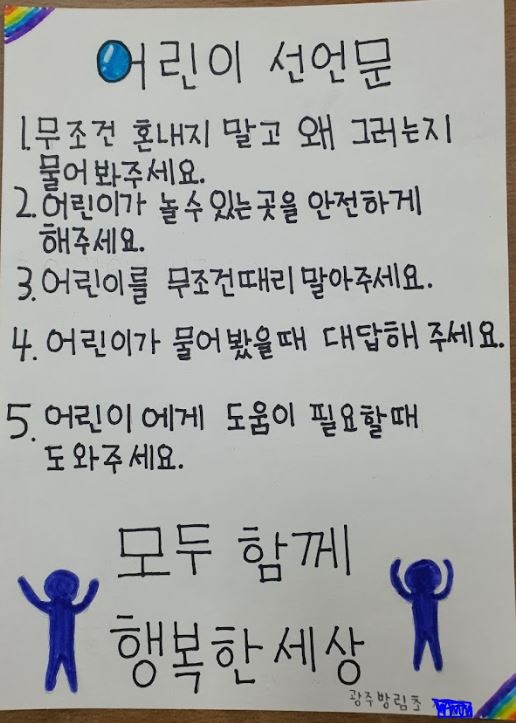 어린이 선언문
1. 무조건 혼내지 말고 왜 그러는지
물어봐주세요.
2. 어린이가 놀 수 있는 곳을 안전하게
해주세요.
3. 어린이를 무조건때리 말아주세요.
4. 어린이가 물어봤을때 대답해 주세요.
5. 어린이에게 도움이 필요할때
도와주세요.
모두 함께
행복한 세상
광주방림초